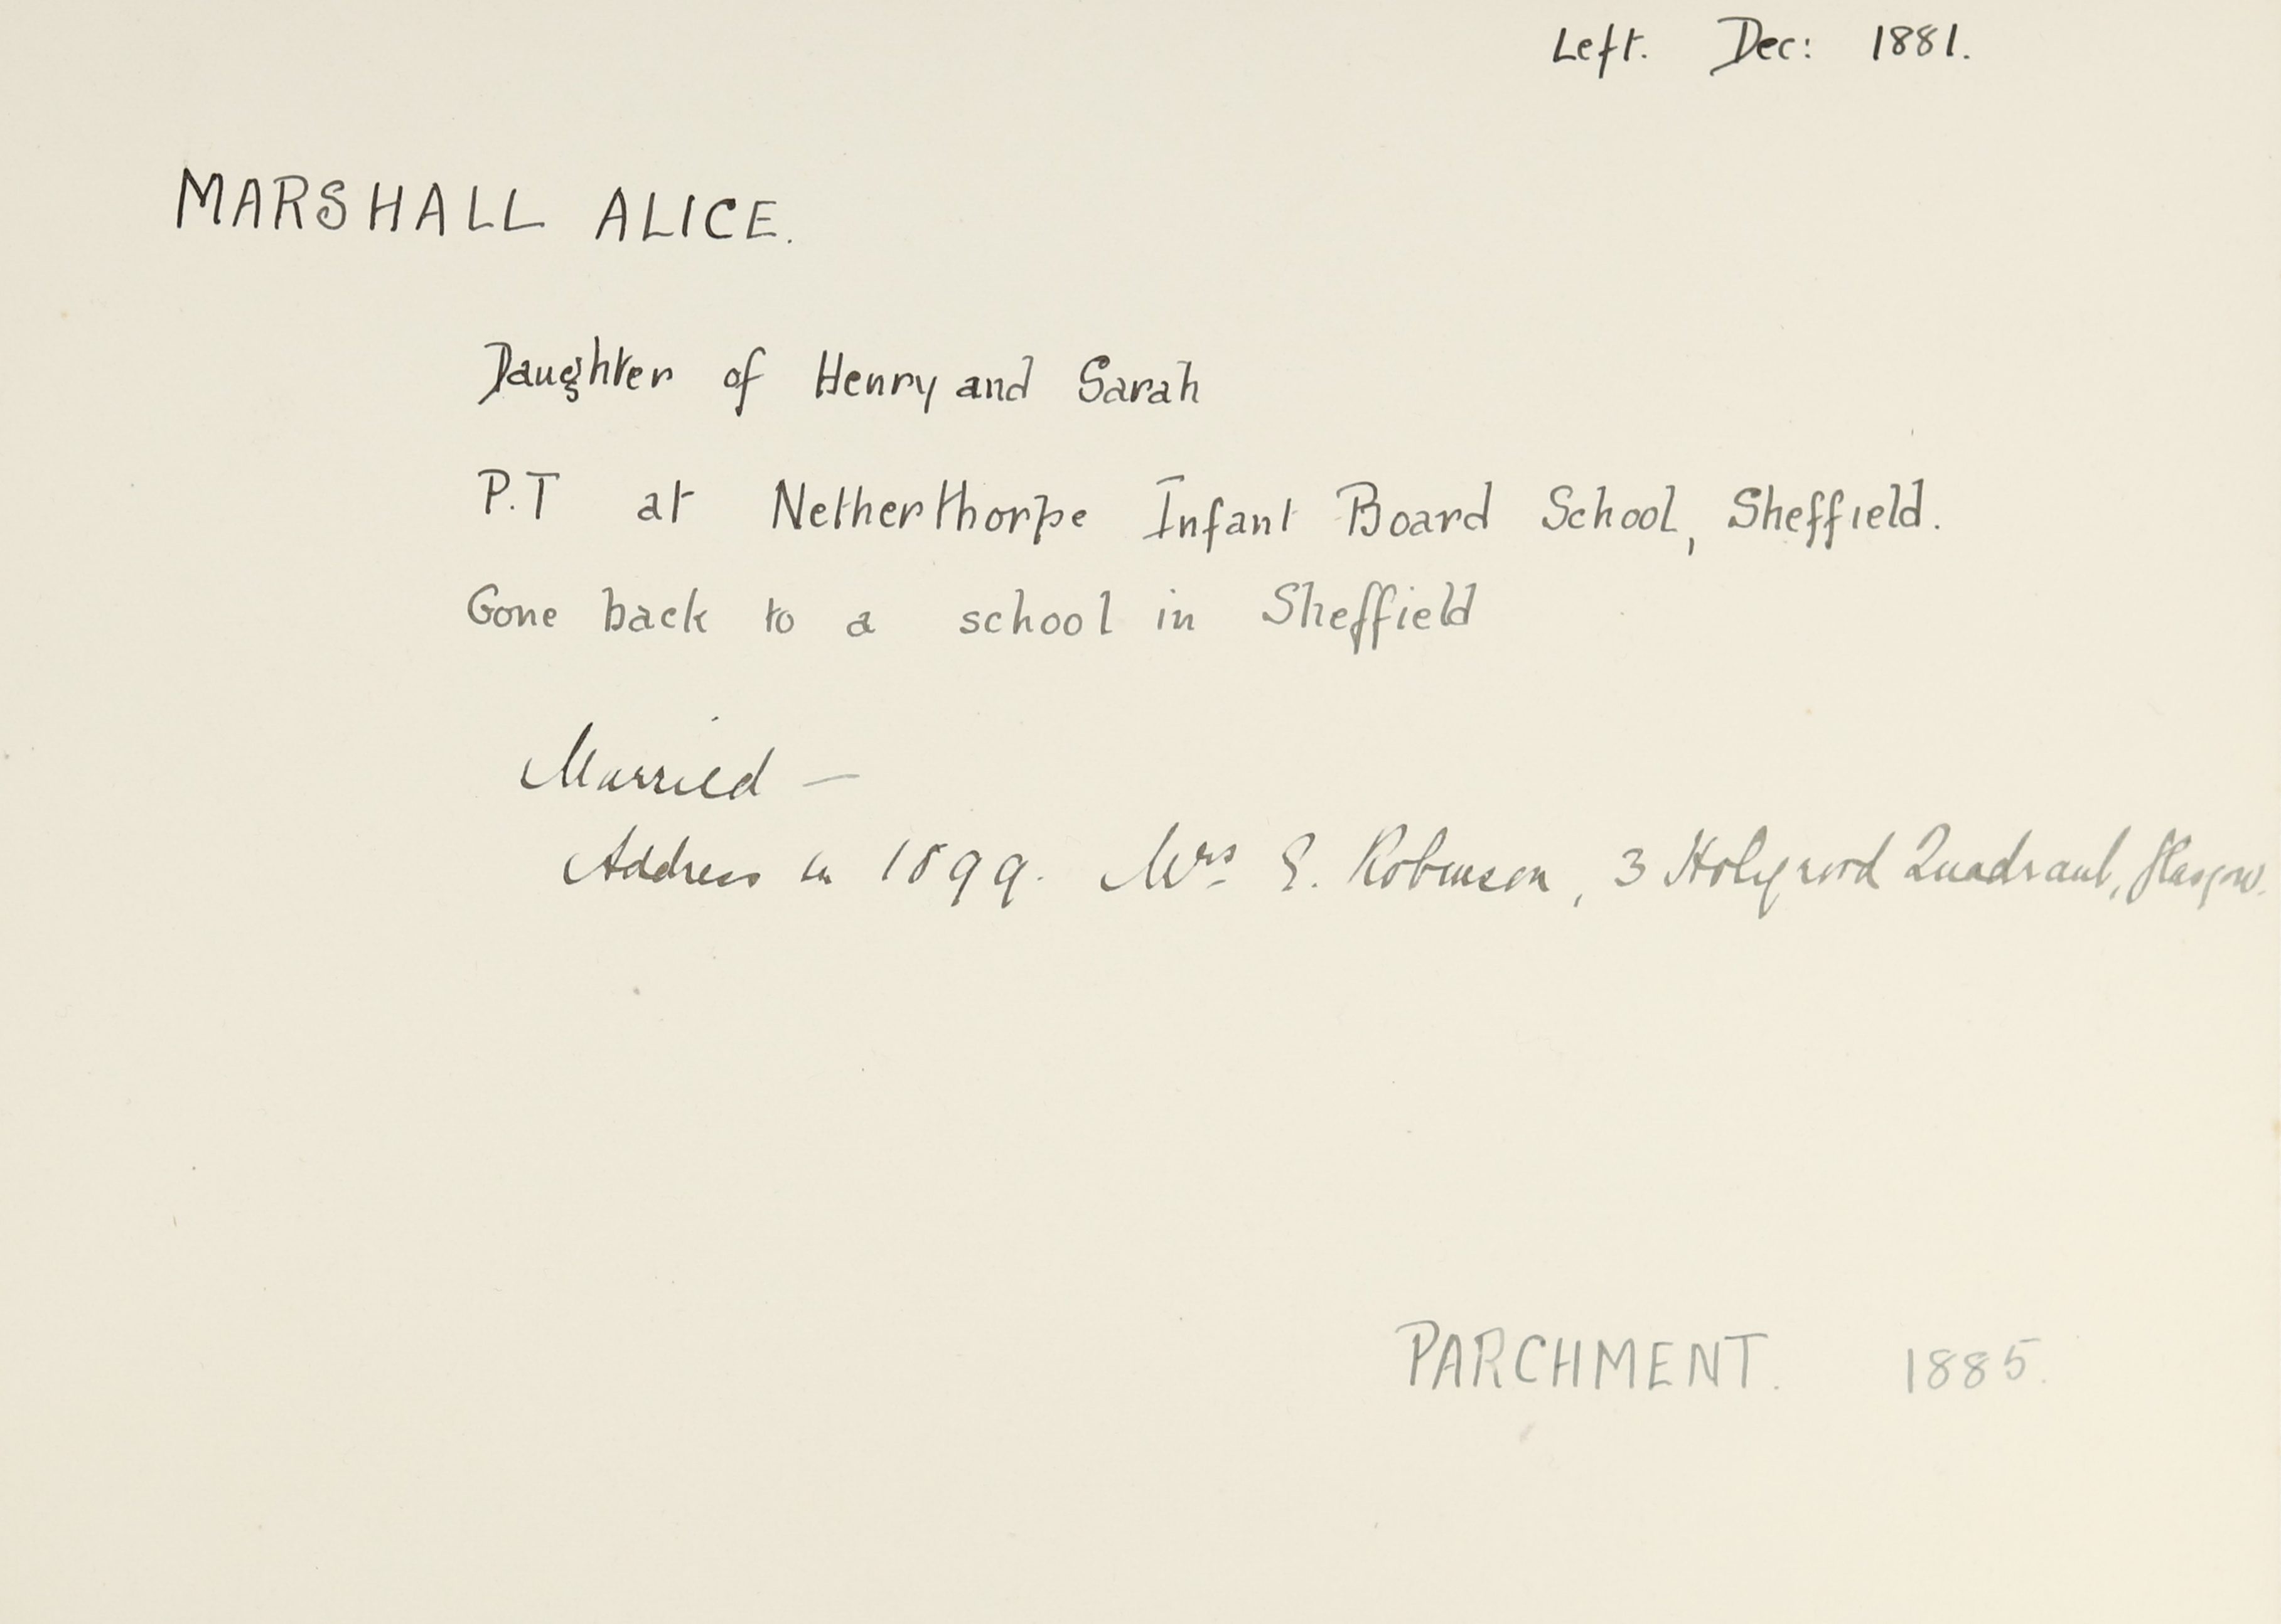 Left. Dec: 1881.
MARSHALL ALICE.
Daughter of Henry and Sarah
P.T at Netherthorpe Infant Board School, Sheffield.
Gone back to a school in Sheffield
Married —
Address in 1899. Mrs E. Robinson, 3 Holyrood Quadrant, Glasgow.
PARCHMENT. 1885.